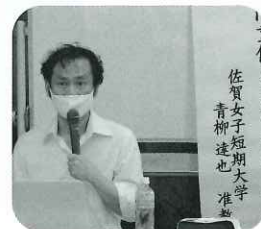 佐賀女子短期大学
青柳達也 准教